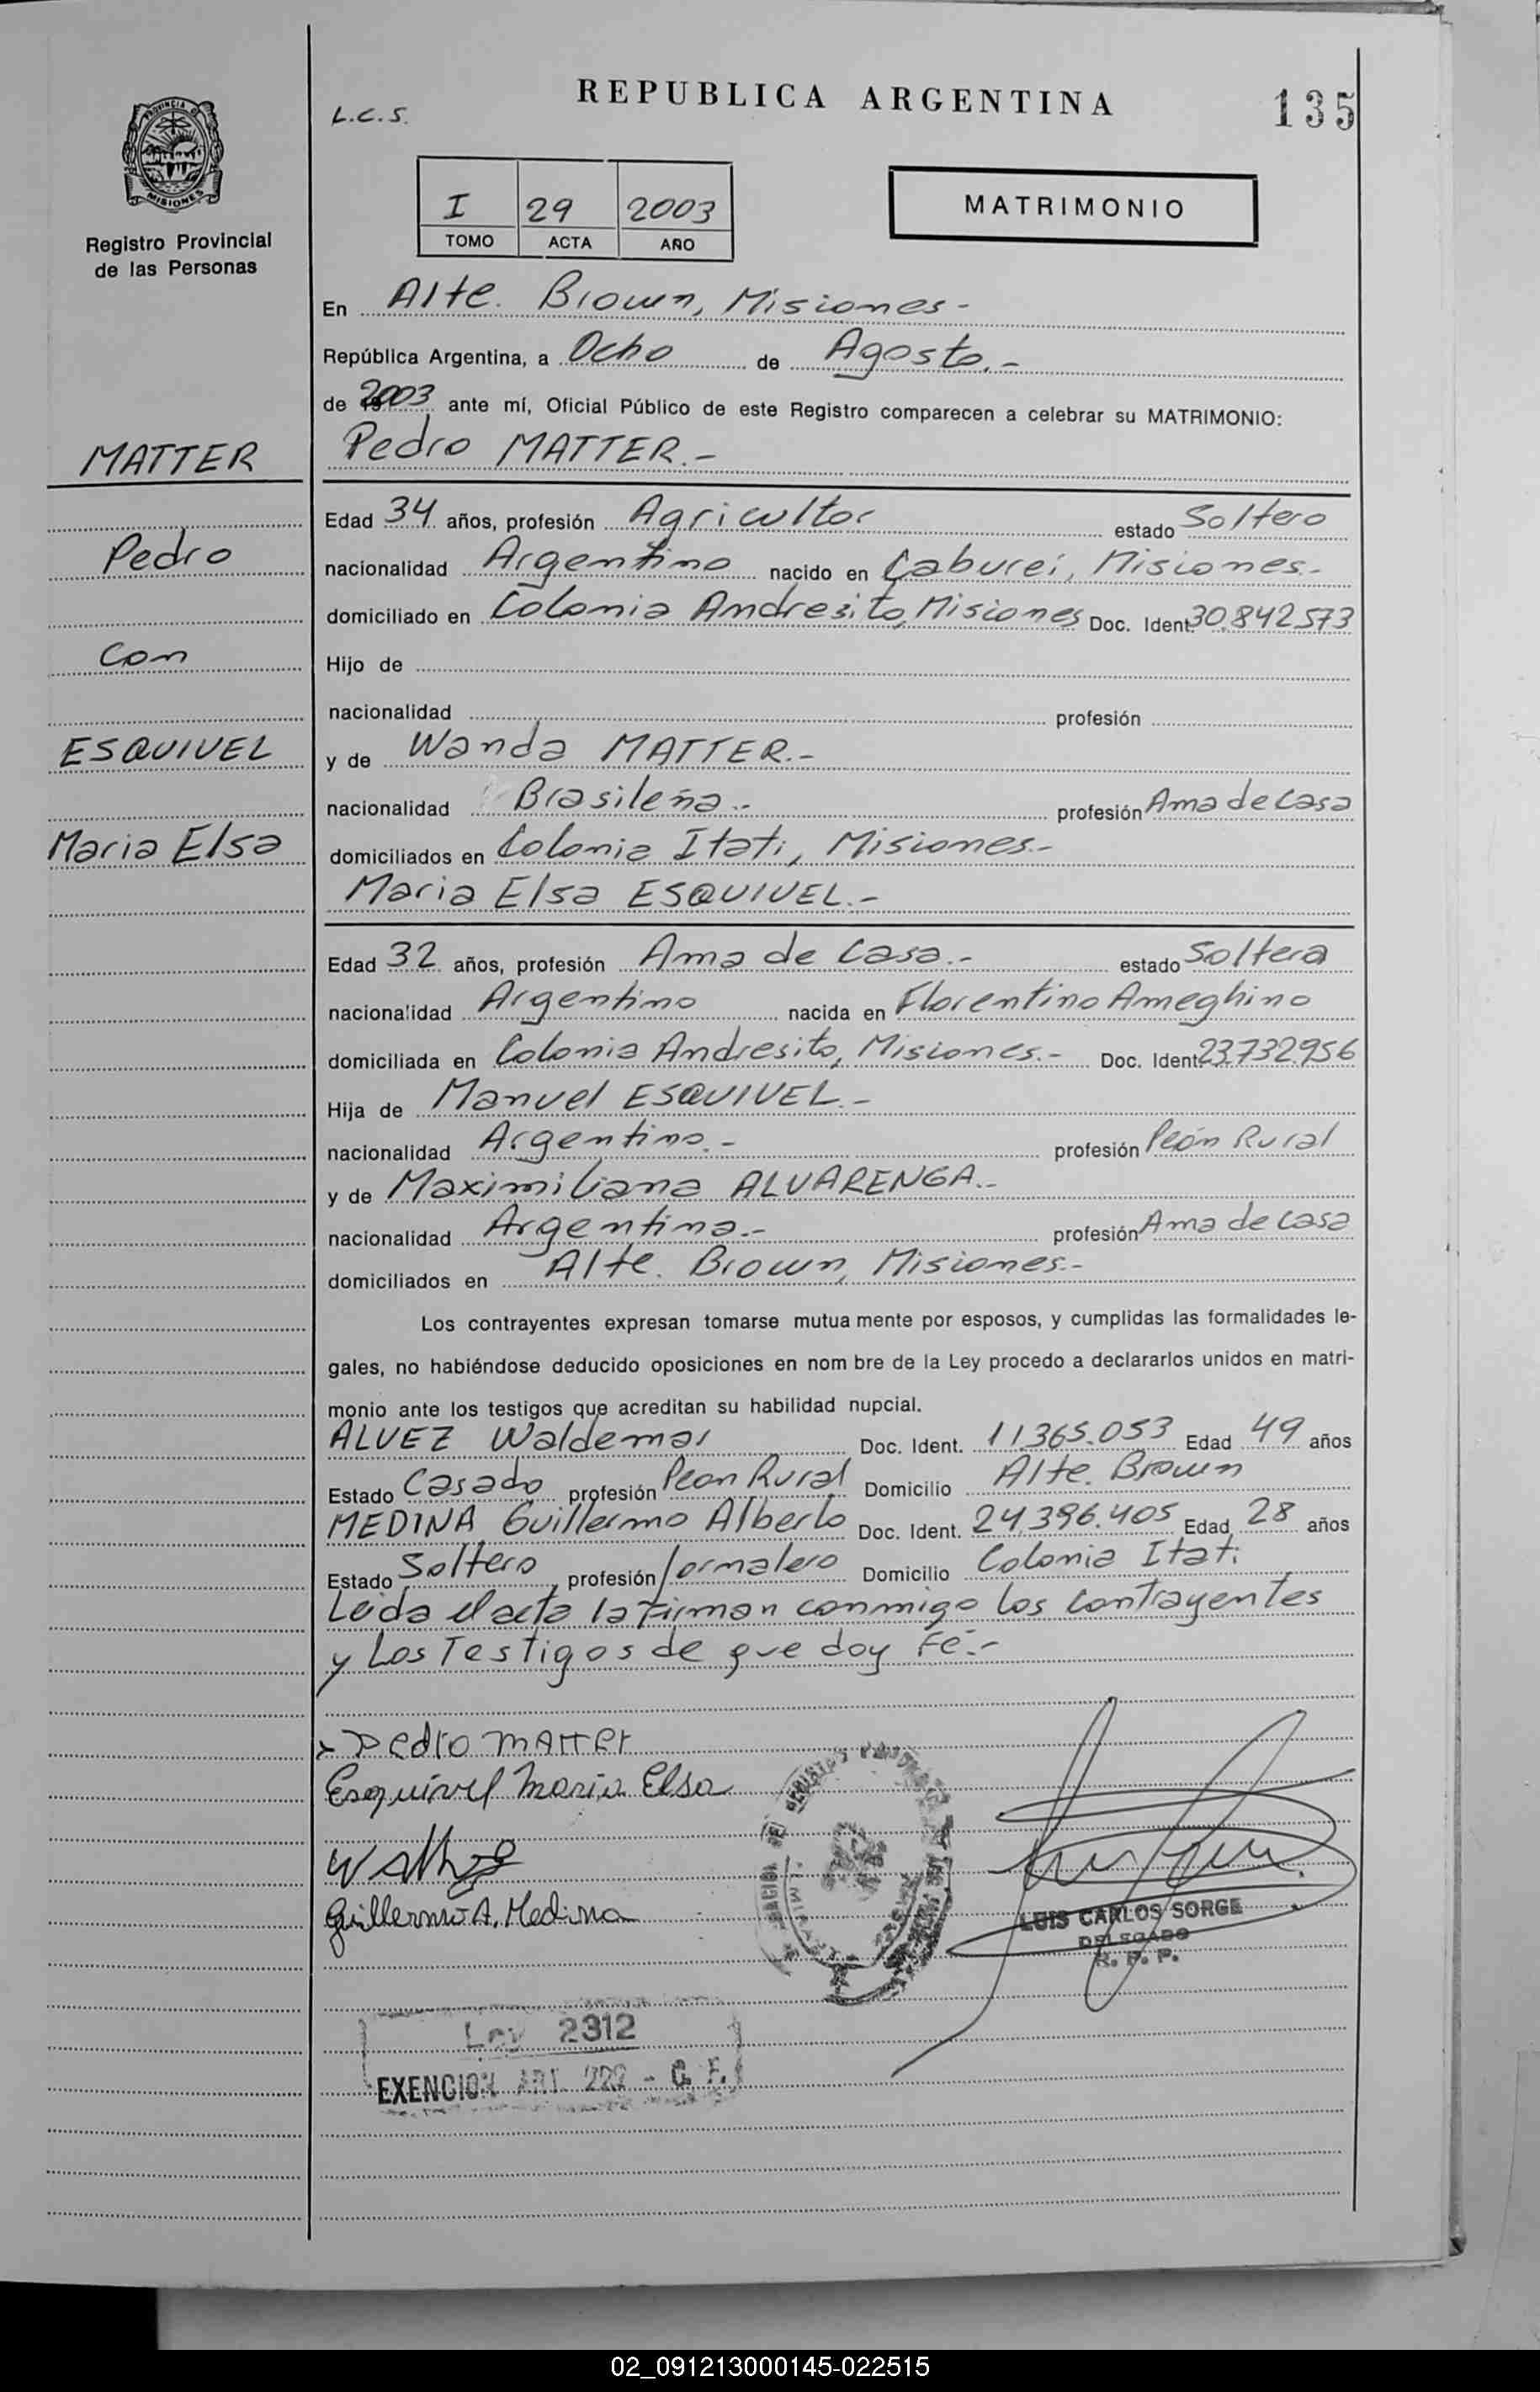 REPUBLICA ARGENTINA
135
L.C.S.
PROVINCIA DE
MISIONES
Registro Provincial
de las Personas
I 29 2003
TOMO ACTA AÑO
MATRIMONIO
En Alte. Brown, Misiones-
República Argentina, a Ocho de Agosto.-
de 2003 ante mí, Oficial Público de este Registro comparecen a celebrar su MATRIMONIO:
MATTER
Pedro
Con
ESQUIVEL
Maria Elsa
Pedro MATTER.-
Edad 34 años, profesión Agricultor estado Soltero
nacionalidad Argentino nacido en Caburei, Misiones.-
domiciliado en Colonia Andresito, Misiones Doc. Ident. 30.842.573
Hijo de
nacionalidad profesión
y de Wanda MATTER.-
nacionalidad Brasileña.- profesión Ama de Casa
domiciliados en Colonia Itati, Misiones.-
Maria Elsa ESQUIVEL.-
Edad 32 años, profesión Ama de Casa.- estado Soltera
nacionalidad Argentino nacida en Florentino Ameghino
domiciliada en Colonia Andresito, Misiones.- Doc. Ident. 23.732.956
Hija de Manuel ESQUIVEL.-
nacionalidad Argentino.- profesión Peón Rural
y de Maximiliana ALVARENGA.-
nacionalidad Argentina.- profesión Ama de Casa
domiciliados en Alte. Brown, Misiones.-
Los contrayentes expresan tomarse mutua mente por esposos, y cumplidas las formalidades le-
gales, no habiéndose deducido oposiciones en nom bre de la Ley procedo a declararlos unidos en matri-
monio ante los testigos que acreditan su habilidad nupcial.
ALVEZ Waldemar Doc. Ident. 11.365.053 Edad 49 años
Estado Casado profesión Peon Rural Domicilio Alte. Brown
MEDINA Guillermo Alberto Doc. Ident. 24.396.405 Edad 28 años
Estado Soltero profesión Jornalero Domicilio Colonia Itati
Leida el acta la Firman conmigo los Contrayentes
y Los Testigos de que doy Fé.-
Pedro MAttEr
Esquivel Maria Elsa
Guillermo A. Medina
LUIS CARLOS SORGE
DELEGADO
R. P. P.
Ley 2312
EXENCION ART. 222 - C. F.
02_091213000145-022515